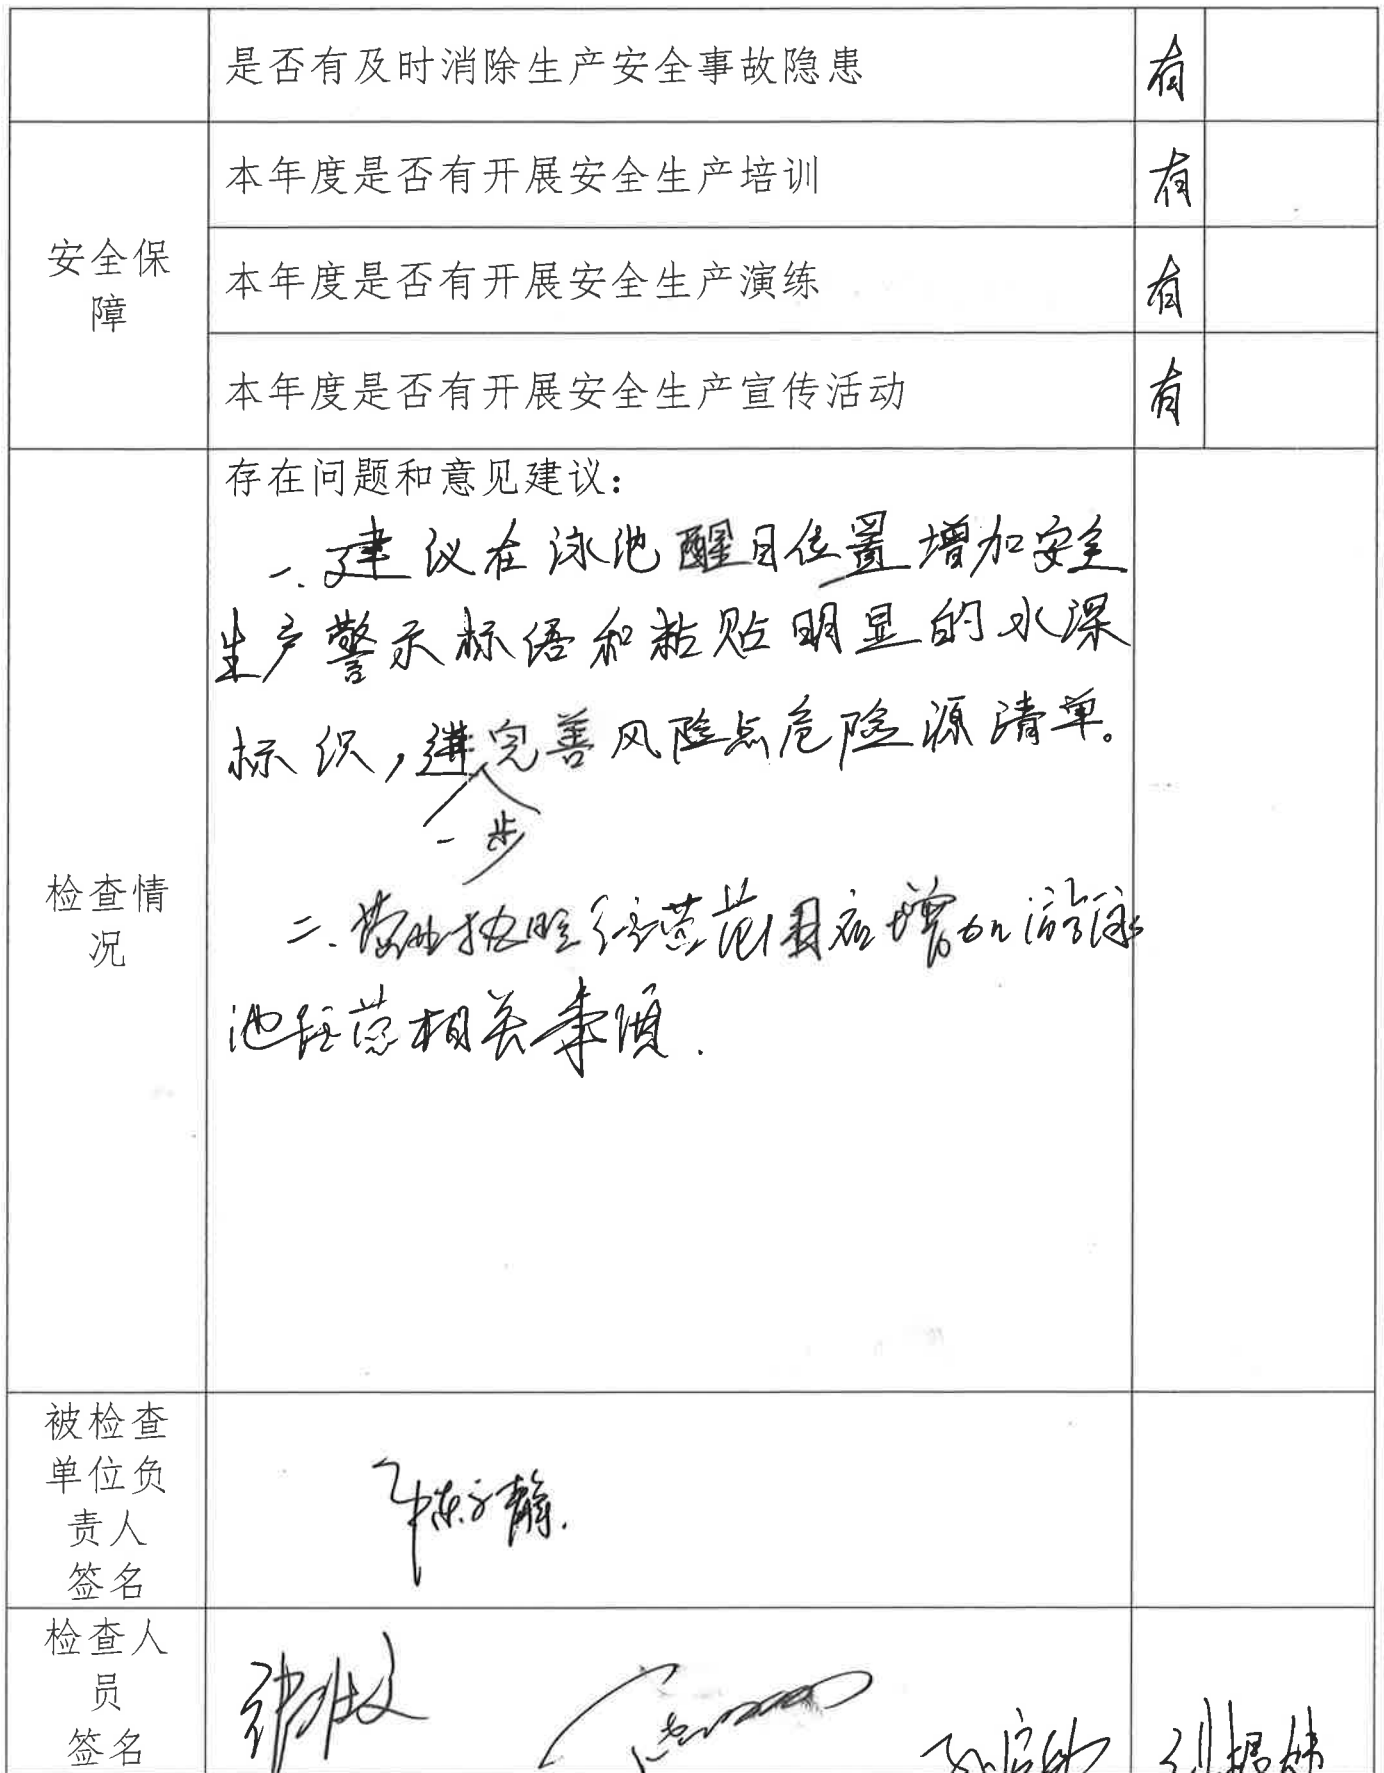 是否有及时消除生产安全事故隐患 有
安全保障
本年度是否有开展安全生产培训 有
本年度是否有开展安全生产演练 有
本年度是否有开展安全生产宣传活动 有
检查情况
存在问题和意见建议：
一.建议在泳池醒目位置增加安全
生产警示标语和粘贴明显的水深
标识，进一步完善风险点危险源清单。
二.营业执照经营范围应增加游泳
池经营相关事项.
被检查
单位负
责人
签名
检查人
员
签名